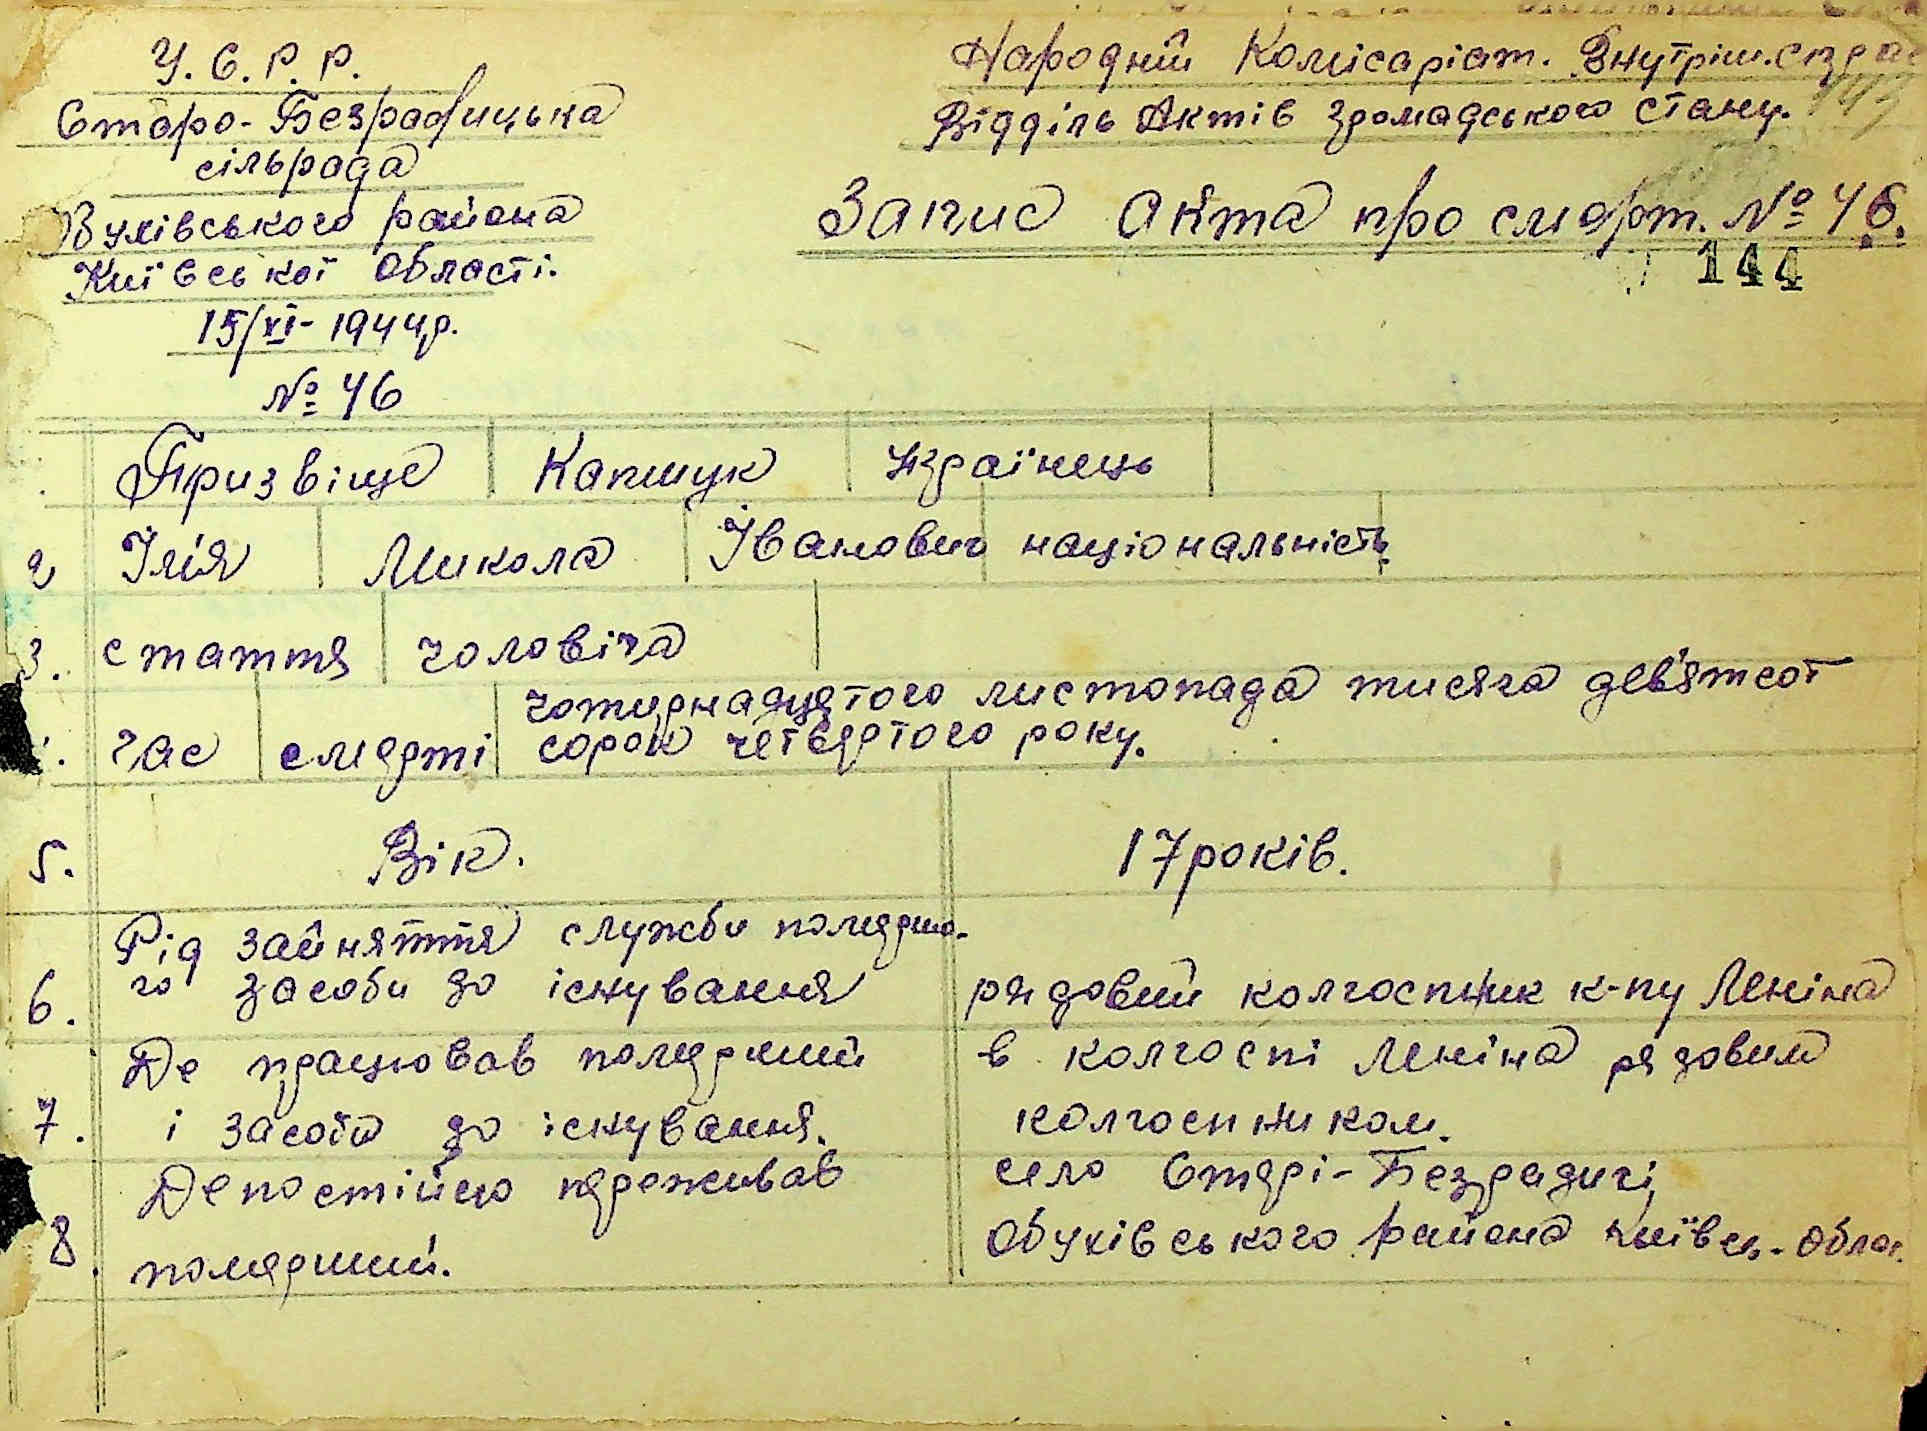 У. С. Р. Р.
Старо-Безрадицька
сільрада
Обухівського района
Київської області.
15/XI- 1944р.
№ 46
Народній Комісаріат. Внутріш. справ
Відділь Актів громадського стану.
Запис акта про смерт. № 46.
144
Призвіще Капшук Українець
2 Імія Микола Іванович національність
3. стаття чоловіча
час смерті чотирнадцятого листопада тисяча дев'ятсот
сорок четвертого року.
5. Вік. 17 років.
Рід зайняття служби помершо-
6. го засоби до існування рядовий колгоспник к-пу Леніна
Де працював померший в колгоспі Леніна рядовим
7. і засоби до існування. колгоспником.
Де постійно проживав село Старі-Безрадичі,
8. померший. Обухівського района Київськ. облас.